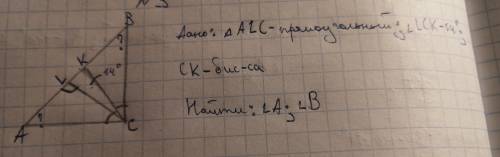 N 3
B
?
K
L
14°
A
?
C
Дано: △ABC - прямоугольный; ∠LCK=14°;
CK-бис-са
Найти: ∠A; ∠B